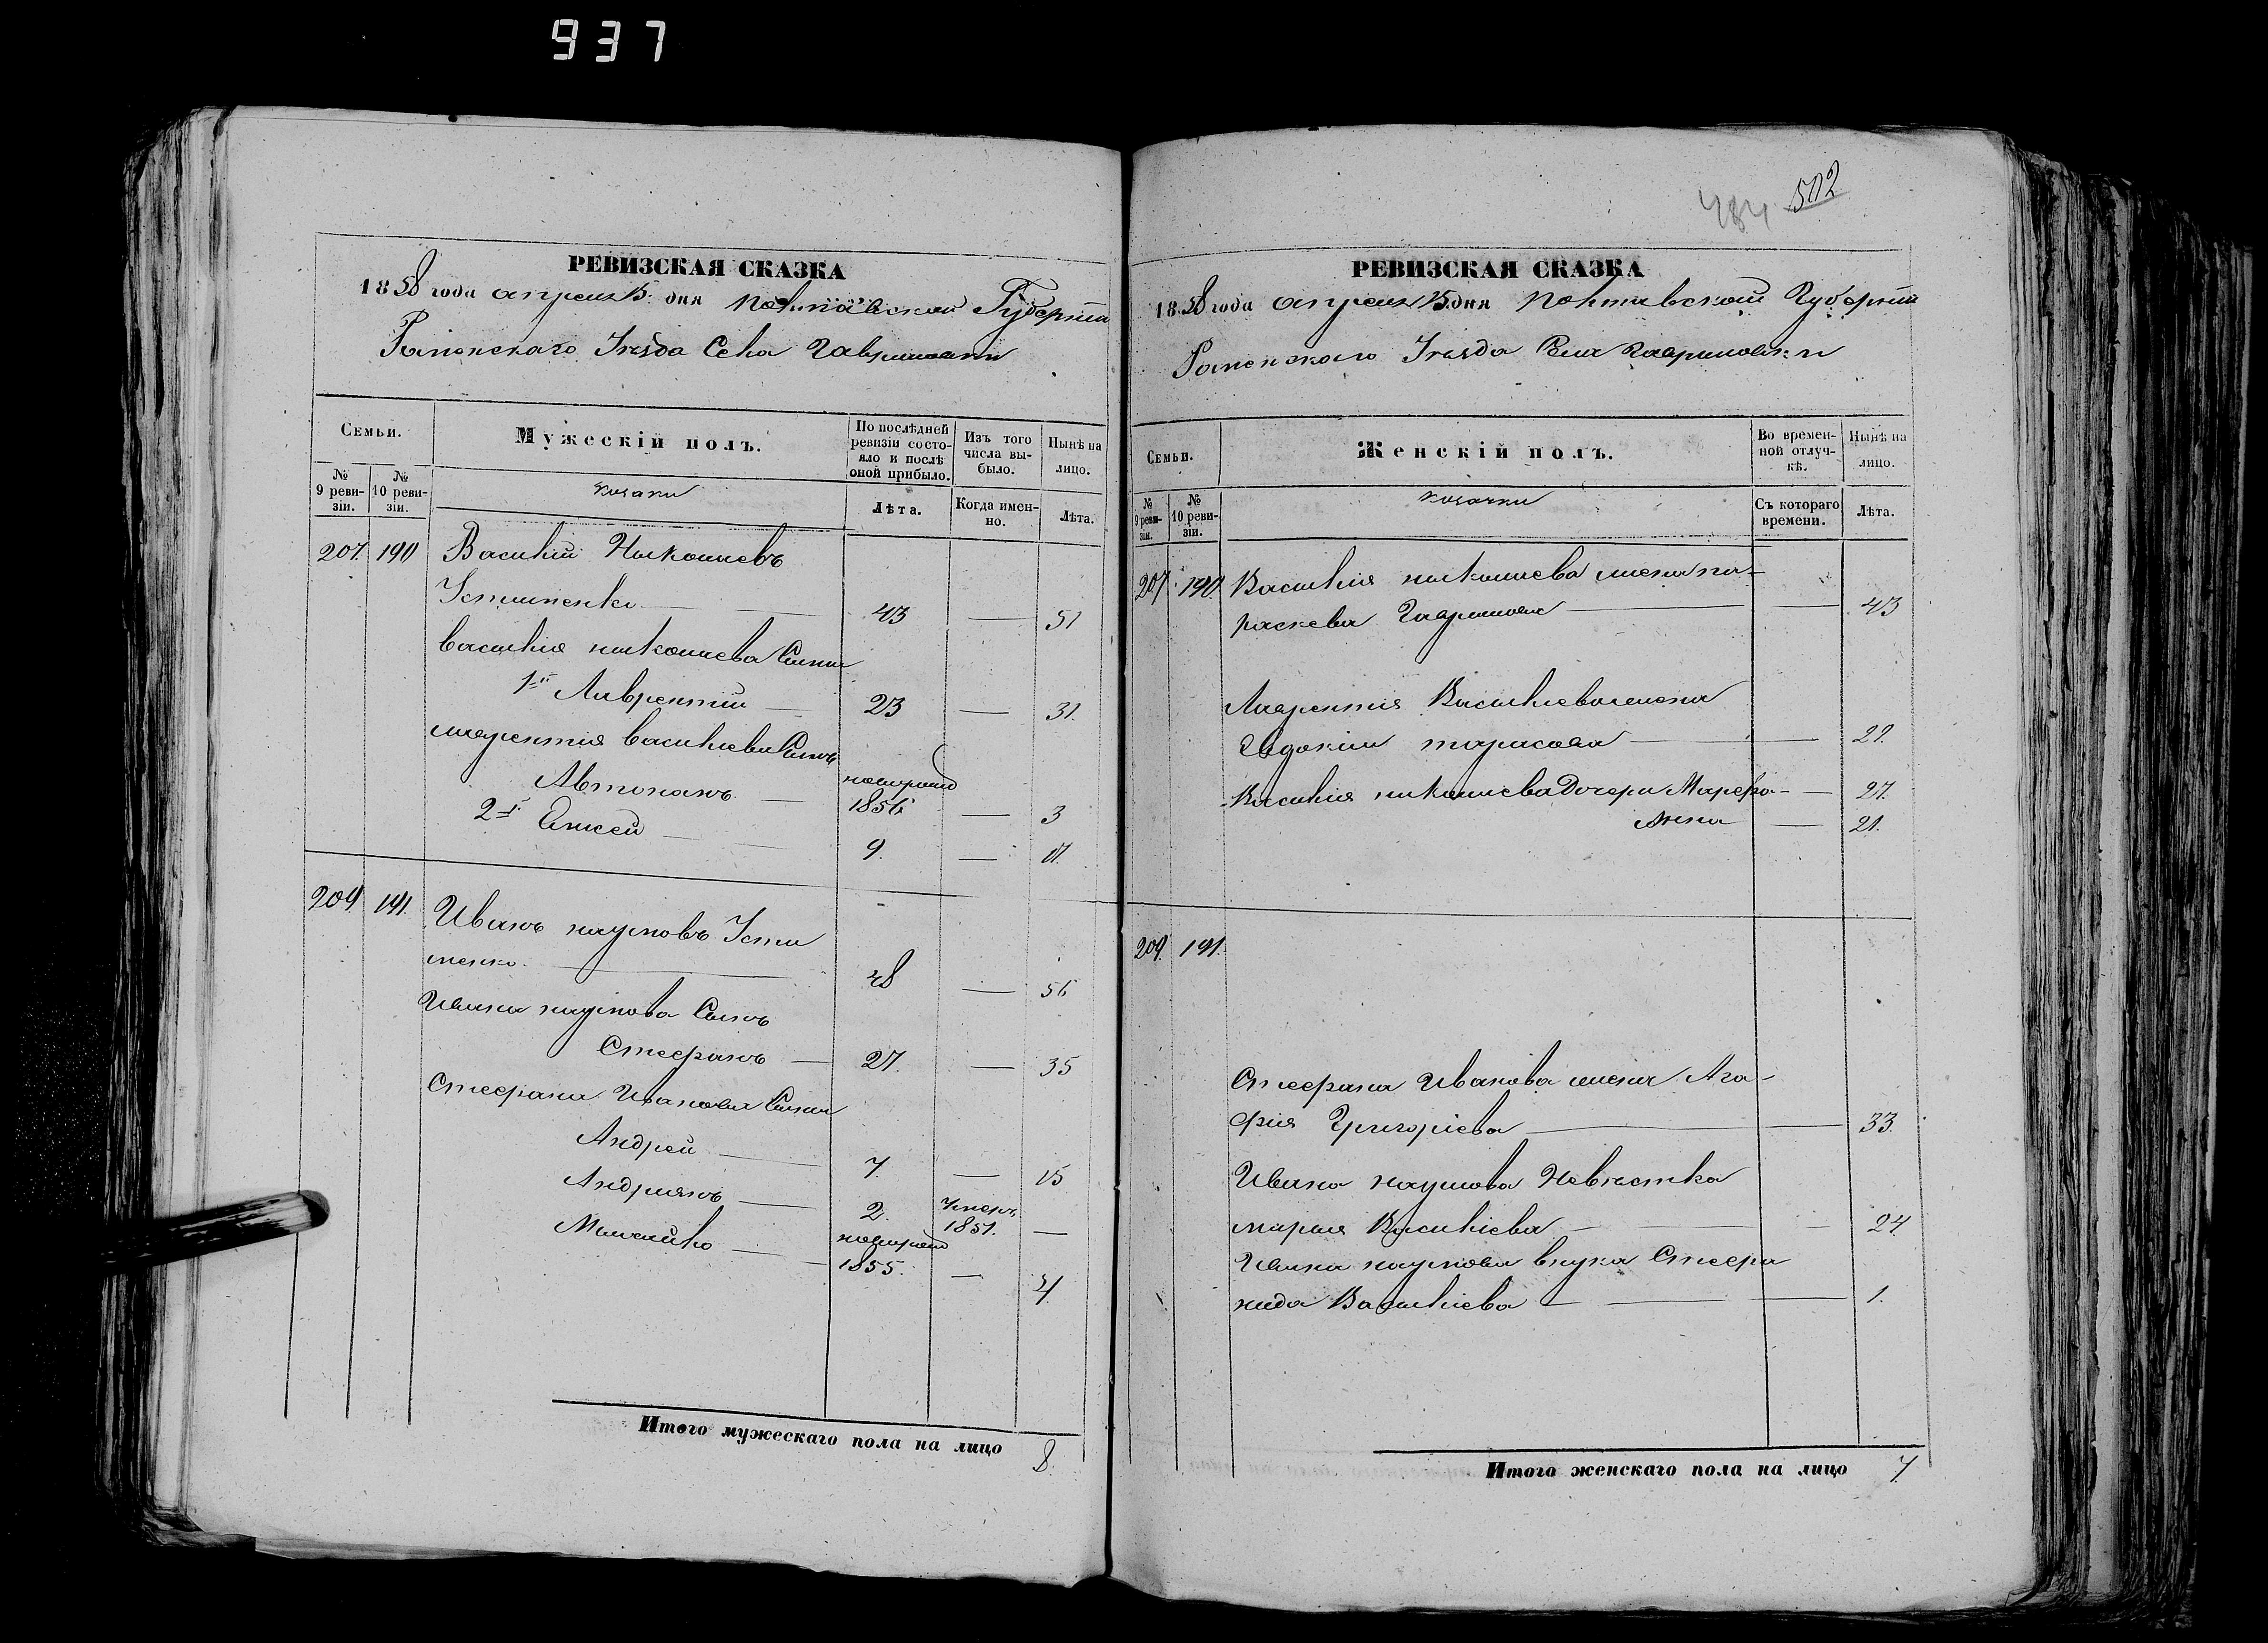 937
РЕВИЗСКАЯ СКАЗКА
1858 года апреля 15 дня Полтавской Губерніи
Роменскаго Уезда Села Гавриловки
Семьи.
Мужескій полъ.
По послѣдней ревизіи состояло и послѣ оной прибыло.
Изъ того числа выбыло.
Нынѣ на лицо.
№ 9 ревизіи.
№ 10 ревизіи.
козаки
Лѣта.
Когда именно.
Лѣта.
207. 190 Василій
Устименко 43 — 51
Василія Сыны
1й Лаврентій — 23 — 31.
Лаврентія Васильева Сынъ
Автономъ — новорожд 1856 — 3
2й 9. — 17.
209. 191. Иванъ Наумовъ Усти
менко. 48 — 56
Ивана Наумова Сынъ
Стефанъ — 27. — 35
Стефана Иванова Сыны
Андрей — 7. — 15
Андріянъ — 2. Умеръ 1851. —
Михайло — новорожд 1855. — 4
Итого мужескаго пола на лицо 8.
484 502
РЕВИЗСКАЯ СКАЗКА
1858 года апреля 15 дня Полтавской Губерніи
Роменскаго Уезда Села Гавриловки
Семьи.
Женскій полъ.
Во временной отлучкѣ.
Нынѣ на лицо.
№ 9 ревизіи.
№ 10 ревизіи.
козачки
Съ котораго времени.
Лѣта.
207 190. Василія жена Па-
раскева — — 43
Лаврентія Васильева жена
Евдокія Тарасова — —
Василія Дочери Марфа — — 27.
Анна — 21.
209. 191.
Стефана Иванова жена Ага-
фия Григоріева — — 33.
Ивана Наумова Невѣстка
Марія Василіева — — 24.
Ивана Наумова внука Стефа
нида Василіева — — 1.
Итого женскаго пола на лицо 7.